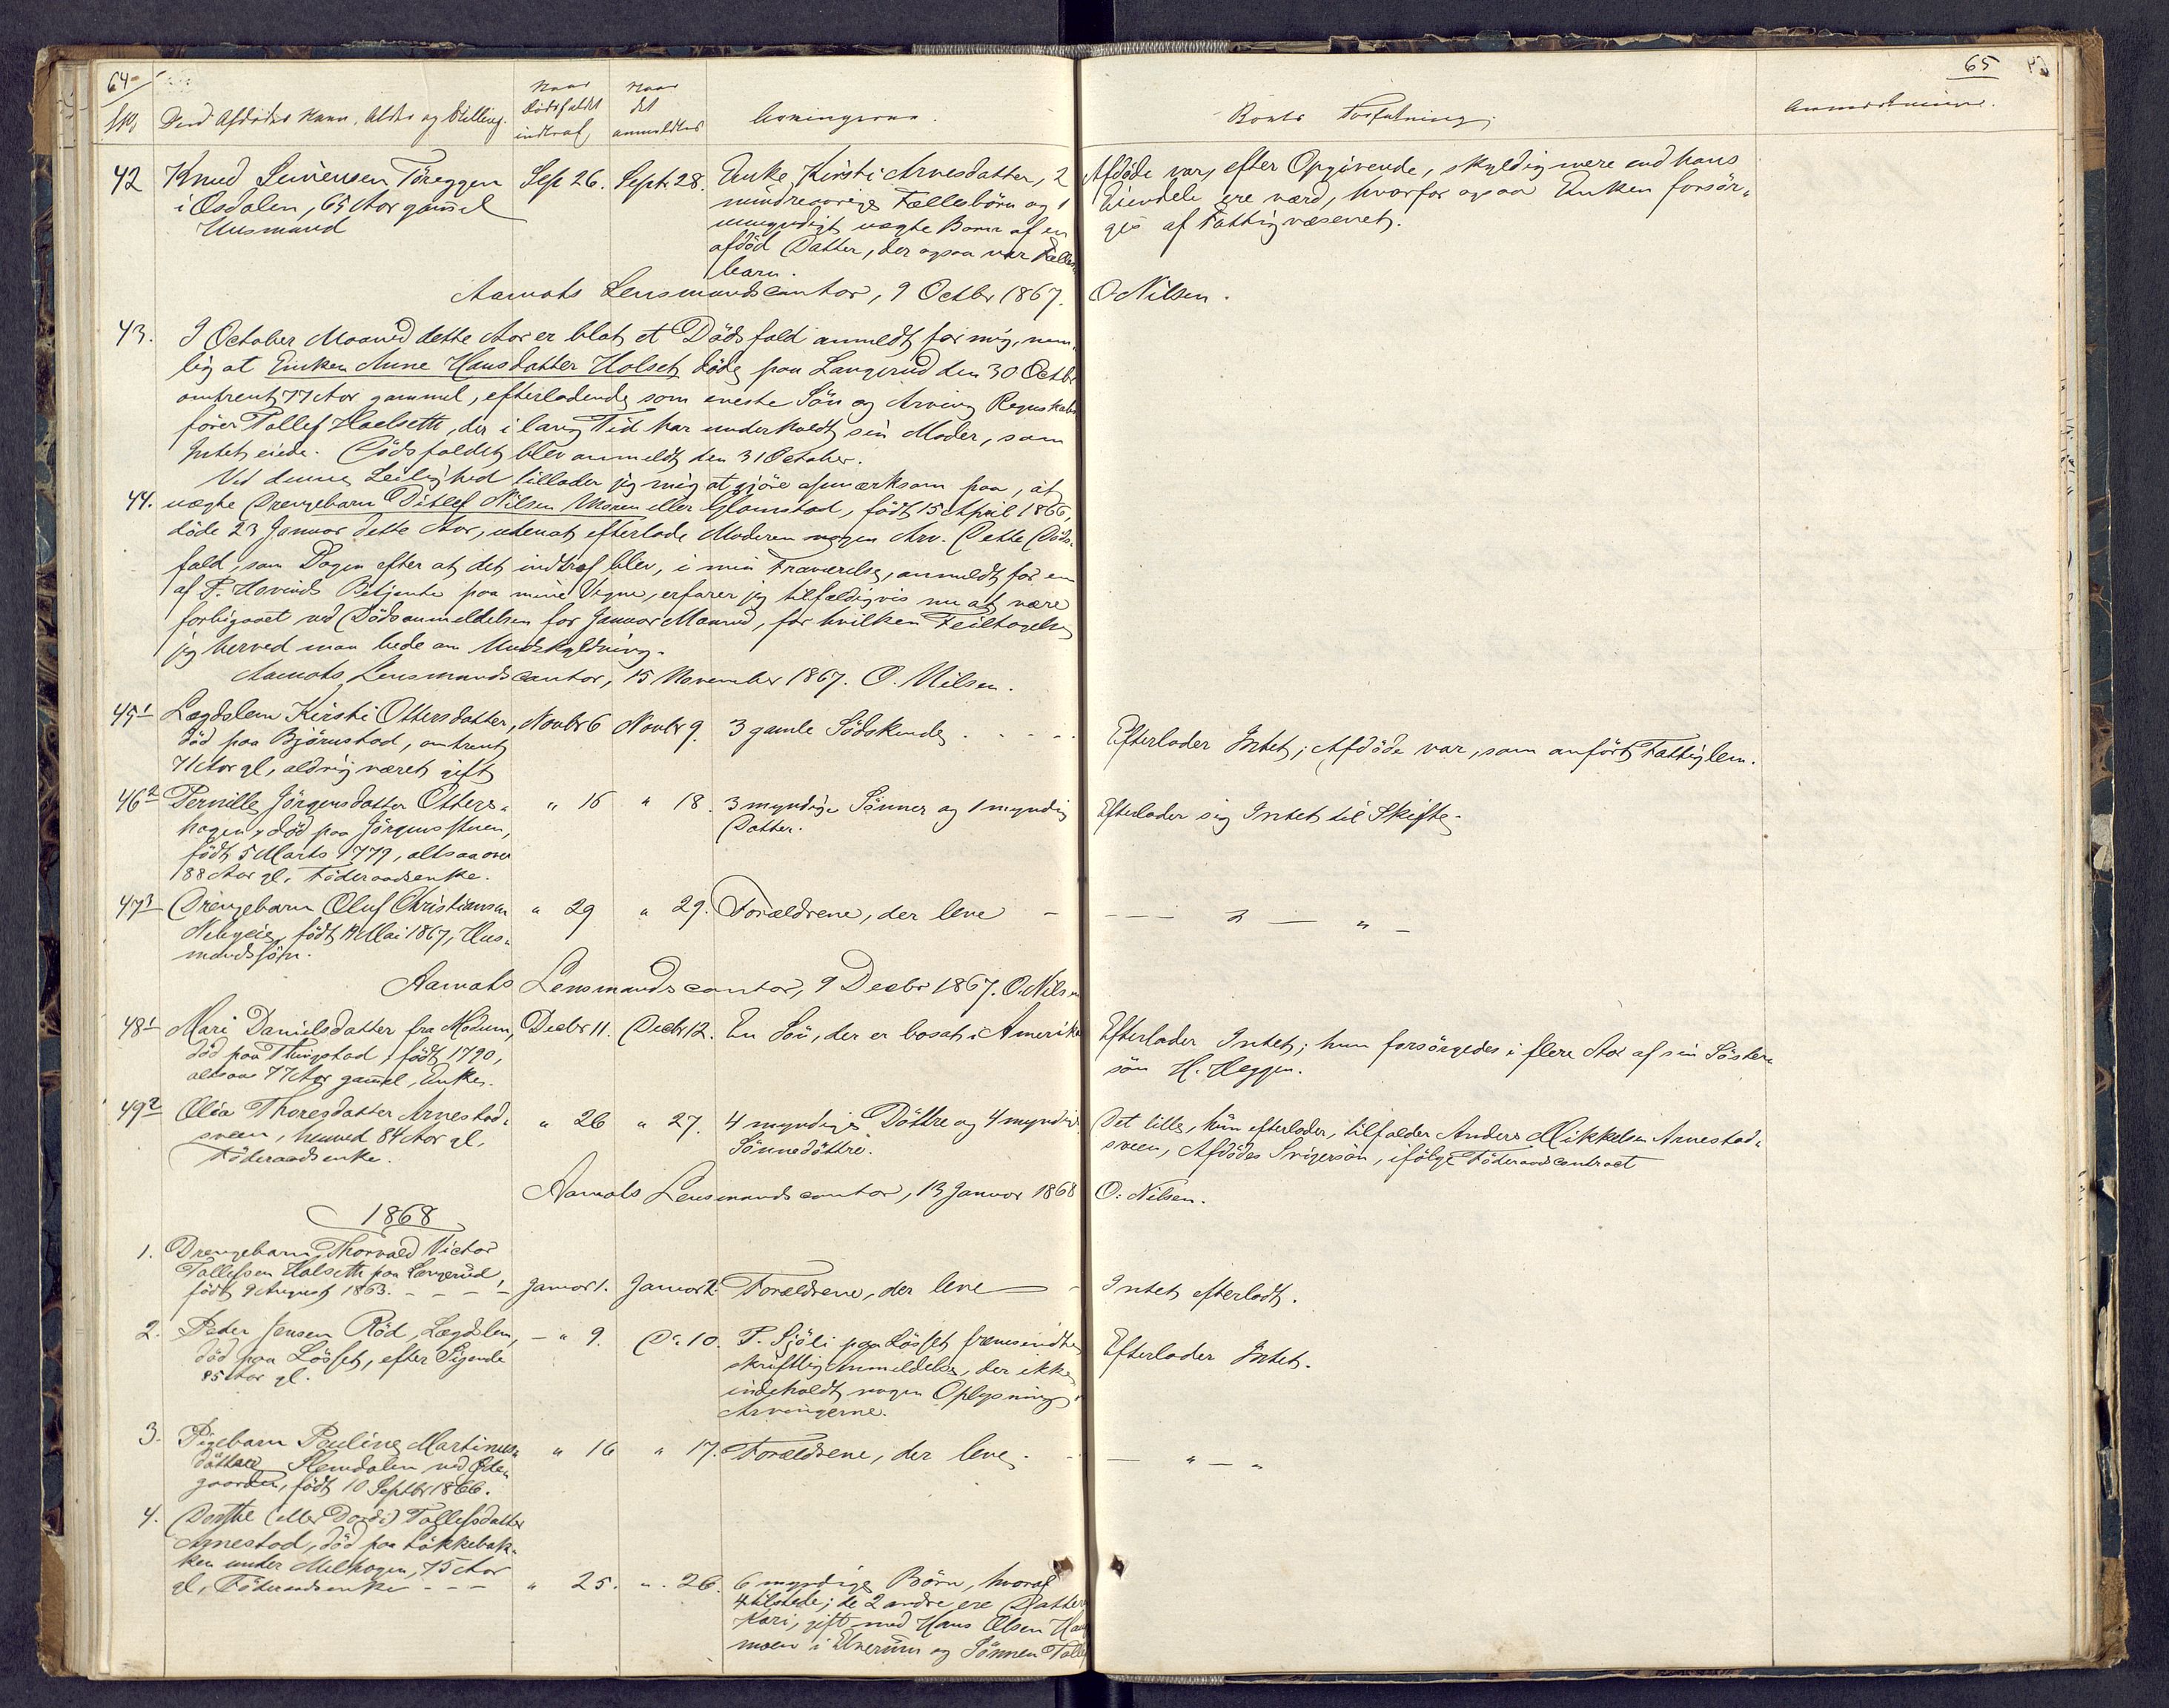 64
65
No
Den Afdødes Navn, Alder og Stilling.
Naar Dödsfaldet indtraf
Naar det anmeldtes
Arvingerne.
Boets Forfatning
Anmærkninger.
42 Knud Seversen Töreggen Sept 26. Sept. 28. Enke, Kirsti Arnesdatter, 2 Afdöde var, efter Opgivende, skyldig mere end hans
i Osdalen, 65 Aar gamel mindreaarige Fællesbörn og 1 Eiendele ere værd, hvorfor ogsaa Enken forsör-
Husmand umyndigt uægte Barn af en ges af Fattigvæsenet.
afdöd Datter, der ogsaa var Fælles
barn.
Aamots Lensmandscontor, 9 Octbr 1867. O. Nilsen.
43. I October Maaned dette Aar er blot et Dödsfald anmeldt for mig, nem-
lig at Enken Anne Hansdatter Holset döde paa Langerud den 30 Octbr
omtrent 77 Aar gammel, efterladende som eneste Sön og Arving Regnskabs
förer Tollef Haelseth, der i lang Tid har underholdt sin Moder, som
Intet eiede. Dödsfaldet blev anmeldt den 31 October.
Ved denne Leilighed tillader jeg mig at gjöre opmærksom paa, at
44. uægte Drengebarn Ditlef Nilsen Moren eller Glomstad, födt 15 April 1866,
döde 23 Januar dette Aar, uden at efterlade Moderen nogen Arv. Dette Döds-
fald, som Dagen efter at det indtraf blev, i min Fraværelse, anmeldt for en
af P. Hovinds Betjente paa mine Vegne, erfarer jeg tilfældigvis nu at være
forbigaaet ved Dödsanmeldelsen for Januar Maaned, for hvilken Feiltagelse
jeg herved maa bede om Undskyldning.
Aamots Lensmandscontor, 15 November 1867. O. Nilsen.
45 1 Lægdslem Kirsti Ottersdatter, Novbr 6 Novbr 9. 3 gamle Södskende Efterlader Intet; Afdöde var, som anfört Fattiglem.
död paa Björnstad, omtrent
71 Aar gl, aldrig været gift
46 2 Pernille Jörgensdatter Otters- " 16 " 18. 3 myndige Sönner og 1 myndig Efterlader sig Intet til Skifte.
hagen, död paa Jörgensstuen, Datter.
födt 5 Marts 1779, altsaa over
88 Aar gl. Föderaadsenke.
47 3 Drengebarn Oluf Christiansen " 29 " 29. Forældrene, der leve - - - " - " -
födt 14 Mai 1867, Hus-
mandssön.
Aamots Lensmandscontor, 9 Decbr 1867. O. Nilsen
48 1 Mari Danielsdatter fra Modum, Decbr 11. Decbr 12. En Sön, der er bosat i Amerika Efterlader Intet; hun forsörgedes i flere Aar af sin Söster-
död paa Thingstad, födt 1790, sön H. Heggen.
altsaa 77 Aar gamel, Enke.
49 2 Olea Thoresdatter Arnestad- " 26 " 27. 4 myndige Döttre og 4 myndige Det lille, hun efterlader, tilfalder Anders Mikkelsen Arnestad-
sveen, henved 84 Aar gl. Sönnedöttre. sveen, Afdödes Svigersön, ifölge Föderaadscontract
Föderaadsenke.
Aamots Lensmandscontor, 13 Januar 1868 O. Nilsen.
1868
1. Drengebarn Thorvald Victor
Tollefsen Halseth paa Langerud,
födt 9 August 1863. - - - - Januar 1. Januar 2. Forældrene, der leve - Intet efterladt.
2. Peder Jensen Röd, Lægdslem, - " 9. Do 10. P. Sjöli paa Lösset fremsendte Efterlader Intet.
död paa Lösset, efter Sigende skriftlig Anmeldelse, der ikke
85 Aar gl. indeholdt nogen Oplysning
Arvingerne.
3. Pigebarn Pauline Martinus- " 16 " 17. Forældrene, der leve. - - " - "
datter Stendalen ved
gaarden, födt 10 Septbr 1866.
4. Dorthe (eller Dordi) Tollefsdatter
Arnestad, död paa Lökkebak-
ken under Melhagen, 75 Aar
gl, Föderaadsenke - - - " 25. " 26. 6 myndige Börn, hvoraf
4 tilstede; de 2 andre ere Datter
Kari, gift med Hans Olsen
moen i Elverum og Sönnen Tollef